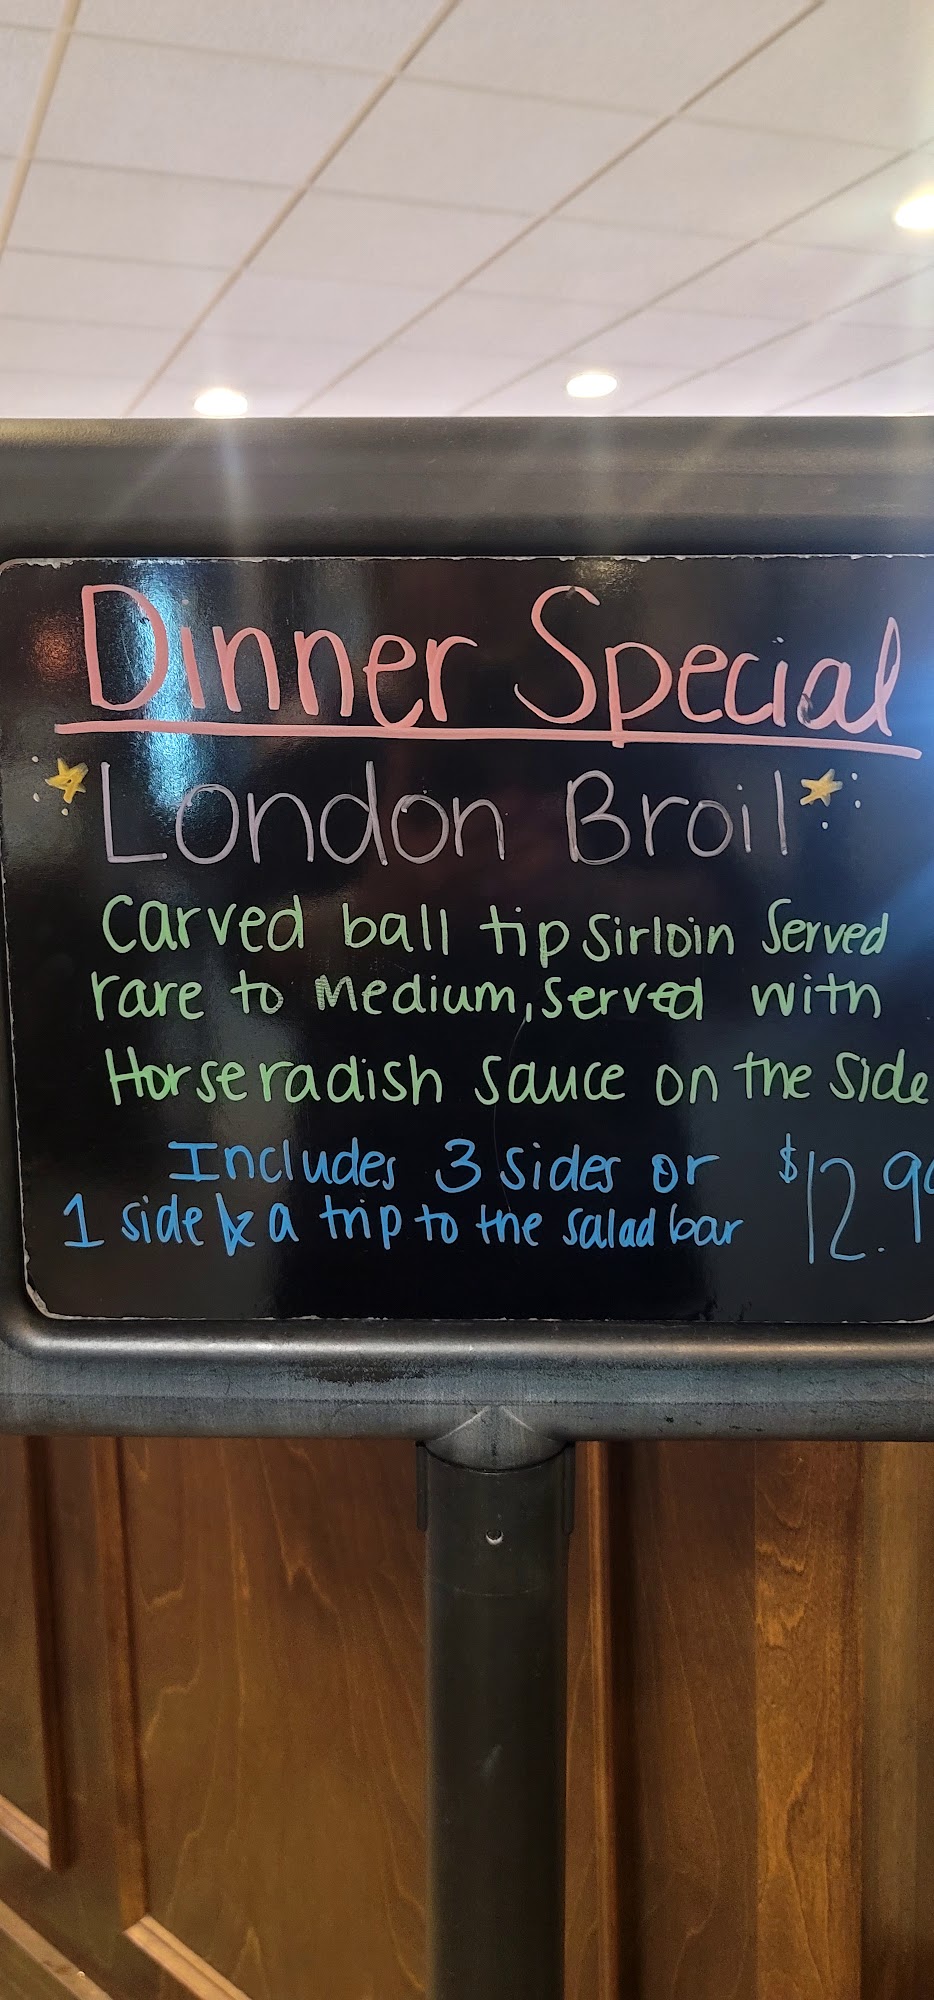 Dinner Special
London Broil
Carved ball tip Sirloin Served
rare to Medium, Served with
Horseradish Sauce on the Side
Includes 3 sides or
1 side & a trip to the salad bar
$12.99